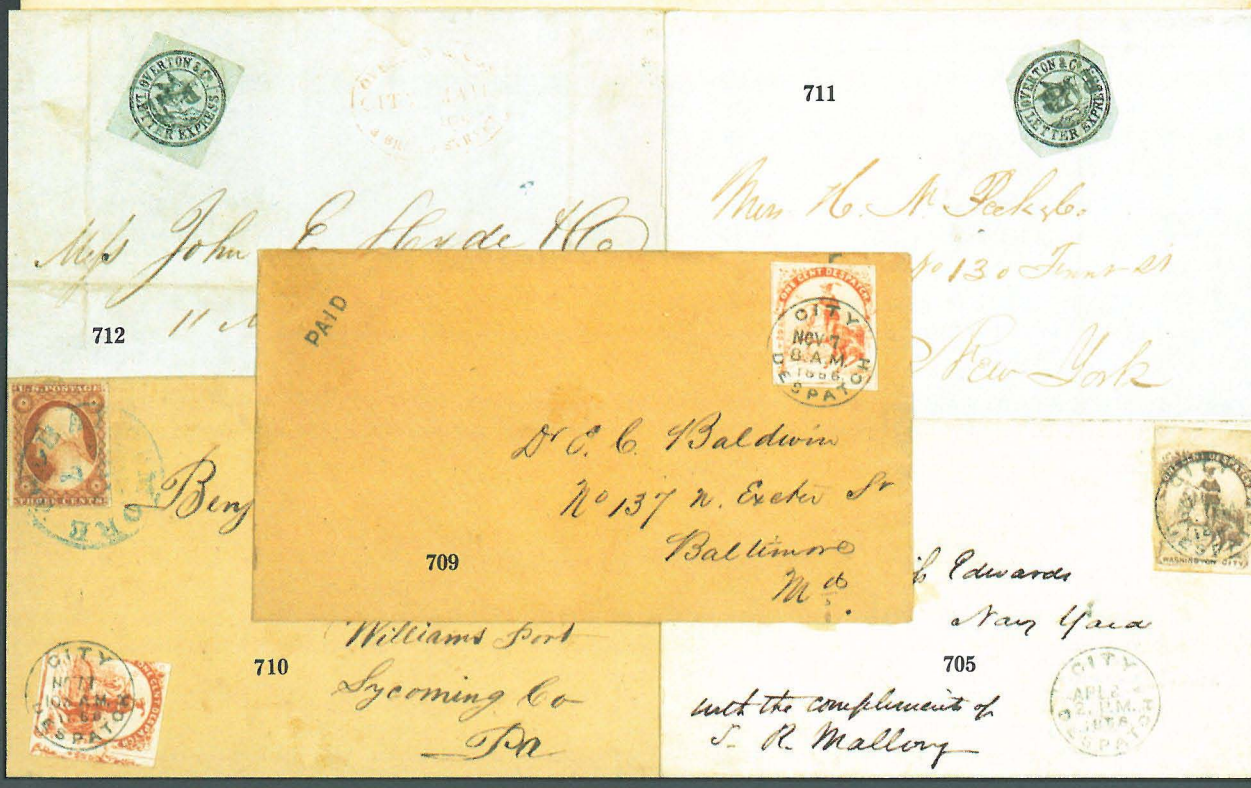 OVERTON & Co.
LETTER EXPRESS
CITY MAIL
Mess John E Hyde & Co
11
712
OVERTON & Co.
LETTER EXPRESS
711
Mess H. N. Peck & Co.
No 130 Front St
New York
PAID
ONE CENT DESPATCH
CITY
NOV 7
8 A.M.
1856
DESPATCH
Dr E. C. Baldwin
No 137 N. Exeter St
Baltimore
Md.
709
U.S. POSTAGE
THREE CENTS
ORE
Benj
Williams Port
Lycoming Co
Pa
710
ONE CENT DESPATCH
CITY
DESPATCH
WASHINGTON CITY
Edwards
Navy Yard
705
with the complements of
S. R. Mallory
CITY
APL 2
2. P.M.
DESPATCH